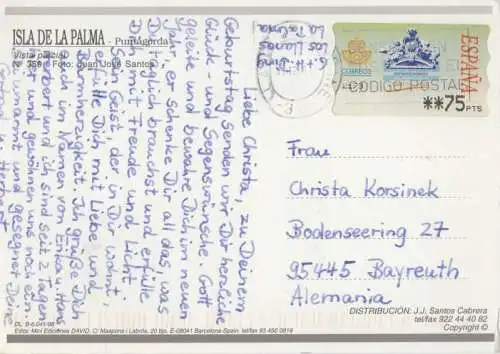 ISLA DE LA PALMA - Puntagorda
Vista parcial
Nº 359 Foto: Juan José Santos
S. + H.
Los Llanos
La Palma
Liebe Christa, zu Deinem
Geburtstag senden wir Dir herzliche
Glück und Segenswünsche. Gott
geleite und bewahre Dich im neuen
Jahr, er schenke Dir all das, was
Du täglich brauchst und erfülle
Dich mit Freude und Licht.
Sein Geist, der in Dir wohnt,
erfülle Dich mit Liebe und
Barmherzigkeit. Ich grüße Dich
auch im Namen von Erika u. Hans
Herbert und ich sind seit 2 Tagen
hier und gewöhnen uns noch ein.
umarmt und gesegnet Deine
u. Herbert
CORREOS
ESPAÑA
CODIGO POSTAL
**75 PTS
Frau
Christa Korsinek
Bodenseering 27
95445 Bayreuth
Alemania
DISTRIBUCIÓN: J.J. Santos Cabrera
tel/fax 922 44 40 82
Copyright ©
DL: B-6.041-98
Edita: Mini Ediciones DAVID. C/ Maspons i Labrós, 20 bjo. E-08041 Barcelona-Spain. tel/fax 93 450 0819